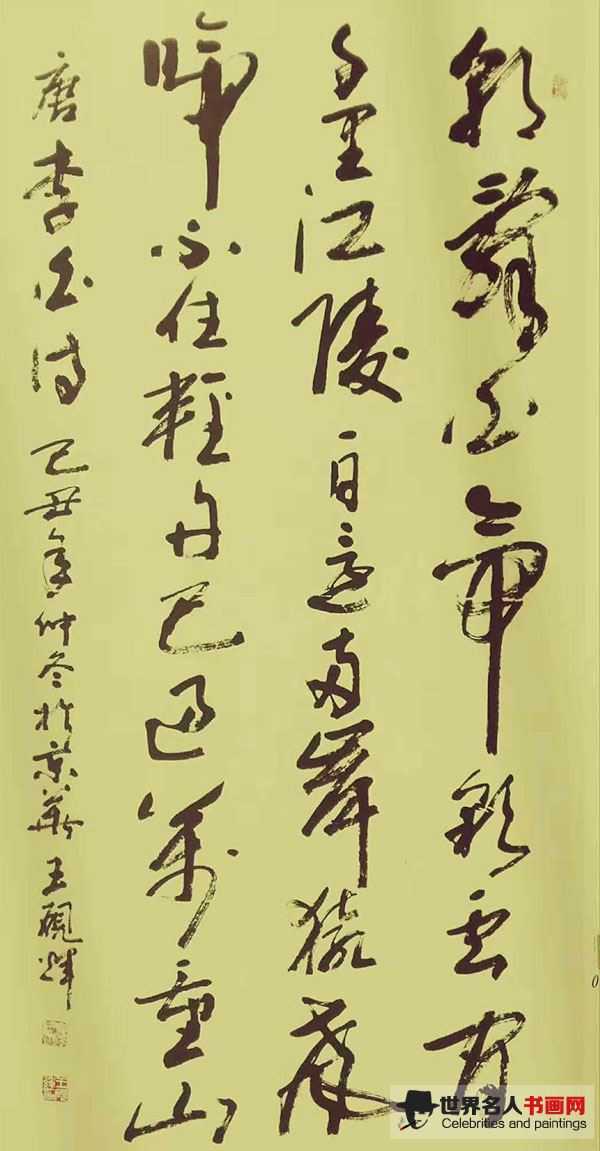 朝辭白帝彩云间
千里江陵一日还两岸猿声
啼不住轻舟已过万重山
唐李白诗 己丑年仲冬於京華王
世界名人书画网
Celebrities and paintings
0